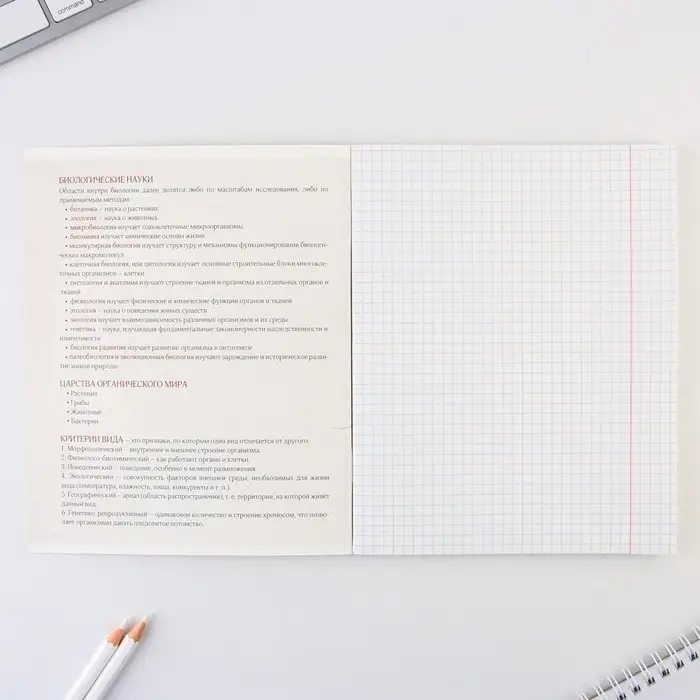 command
БИОЛОГИЧЕСКИЕ НАУКИ
Области внутри биологии далее делятся либо по масштабам исследования, либо по
применяемым методам:
• ботаника – наука о растениях
• зоология – наука о животных
• микробиология изучает одноклеточные микроорганизмы
• биохимия изучает химические основы жизни
• молекулярная биология изучает структуру и механизмы функционирования биологи-
ческих макромолекул
• клеточная биология, или цитология изучает основные строительные блоки многокле-
точных организмов – клетки
• гистология и анатомия изучают строение тканей и организма из отдельных органов и
тканей
• физиология изучает физические и химические функции органов и тканей
• этология – наука о поведении живых существ
• экология изучает взаимозависимость различных организмов и их среды
• генетика – наука, изучающая фундаментальные закономерности наследственности и
изменчивости
• биология развития изучает развитие организма в онтогенезе
• палеобиология и эволюционная биология изучают зарождение и историческое разви-
тие живой природы
ЦАРСТВА ОРГАНИЧЕСКОГО МИРА
• Растения
• Грибы
• Животные
• Бактерии
КРИТЕРИИ ВИДА – это признаки, по которым один вид отличается от другого.
1. Морфологический – внутреннее и внешнее строение организма.
2. Физиолого-биохимический – как работают органы и клетки.
3. Поведенческий – поведение, особенно в момент размножения.
4. Экологический – совокупность факторов внешней среды, необходимых для жизни
вида (температура, влажность, пища, конкуренты и т. п.).
5. Географический – ареал (область распространения), т. е. территория, на которой живёт
данный вид.
6. Генетико-репродуктивный – одинаковое количество и строение хромосом, что позво-
ляет организмам давать плодовитое потомство.